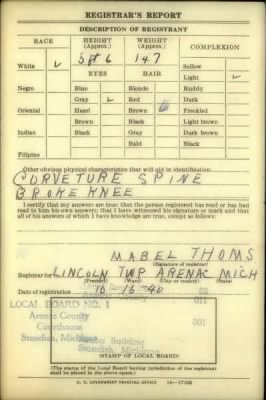 REGISTRAR'S REPORT
DESCRIPTION OF REGISTRANT
RACE
HEIGHT (Approx.)
WEIGHT (Approx.)
COMPLEXION
White ✓
3 ft 6
147
Sallow
EYES
HAIR
Light ✓
Negro
Blue
Blonde
Ruddy
Gray ✓
Red
Dark
Oriental
Hazel
Brown
Freckled
Brown
Black
Light brown
Indian
Black
Gray
Dark brown
Bald
Black
Filipino
Other obvious physical characteristics that will aid in identification
CURVETURE SPINE
BROKE KNEE
I certify that my answers are true; that the person registered has read or has had
read to him his own answers; that I have witnessed his signature or mark and that
all of his answers of which I have knowledge are true, except as follows:
MABEL THOMS
(Signature of registrar)
Registrar for LINCOLN TWP ARENAC MICH
(Precinct) (Ward) (City or county) (State)
Date of registration 10 16 40
LOCAL BOARD NO. 1
Arenac County
011
Courthouse
001
Standish, Michigan
Building
Standish, Michigan
(STAMP OF LOCAL BOARD)
(The stamp of the Local Board having jurisdiction of the registrant
shall be placed in the above space.)
U. S. GOVERNMENT PRINTING OFFICE